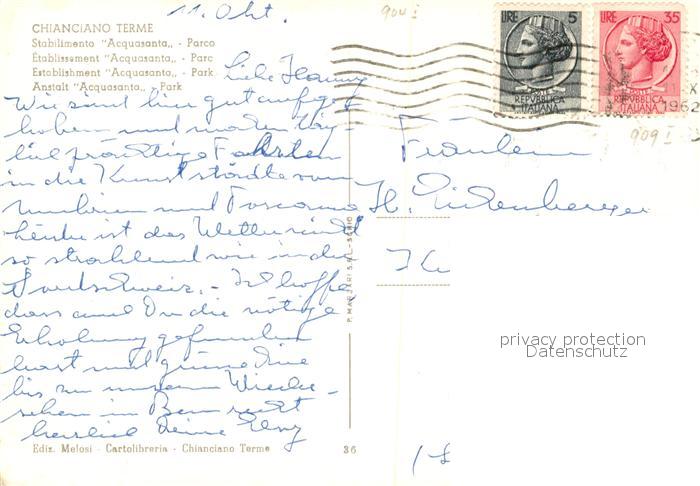 11. Okt.
904 I
CHIANCIANO TERME
Stabilimento "Acquasanta,, - Parco
Établissement "Acquasanta,, - Parc
Establishment "Acquasanta,, - Park
Anstalt "Acquasanta,, - Park
LIRE 5
REPVBBLICA
ITALIANA
LIRE 35
REPVBBLICA
ITALIANA
X
1962
909 I
Wir sind hier gut aufge-
hoben und machen täg-
lich prächtige Fahrten
in die Kunststädte von
Umbrien und Toscana
das Wetter nicht
so strahlend wie in der
Südschweiz. - Ich hoffe,
dass auch Du die nötige
Erholung gefunden
hast und grüsse Dich
bis zu unserem Wieder-
sehen in Bern recht
herzlich Deine
Fräulein
H.
P. MARZARI S.R.L. - SCHIO
privacy protection
Datenschutz
Ediz. Melosi - Cartolibreria - Chianciano Terme
36